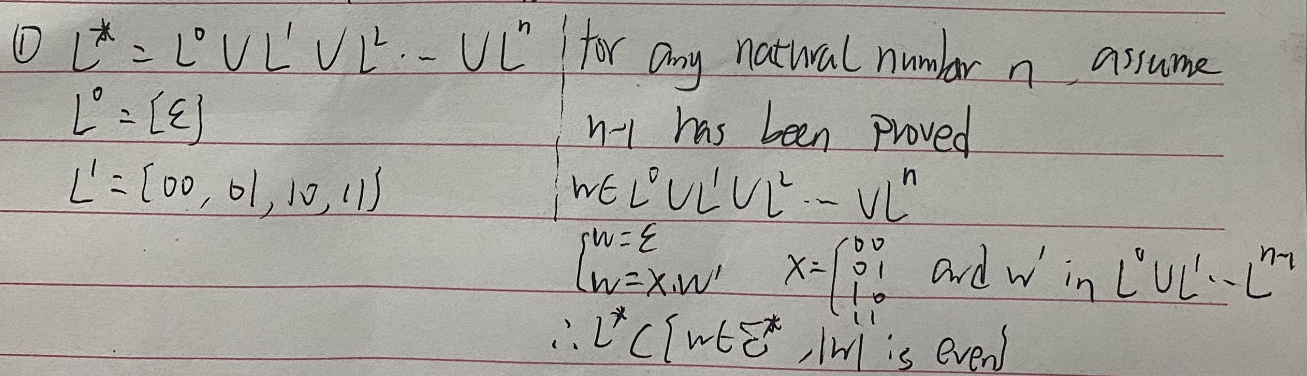 ① L* = L⁰ ∪ L¹ ∪ L² ·· ∪ Lⁿ
L⁰ = {ε}
L¹ = {00, 01, 10, 11}
for any natural number n, assume
n-1 has been proved
w∈ L⁰ ∪ L¹ ∪ L² ·· ∪ Lⁿ
{ w = ε
w = x·w' x = { 00 01 10 11 and w' in L⁰ ∪ L¹ ·· Lⁿ⁻¹
∴ L* ⊂ { w∈Σ*, |w| is even}